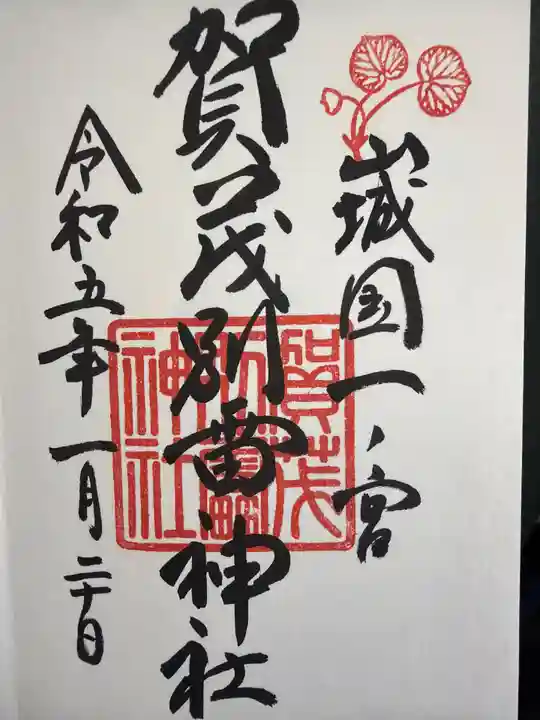 山城国一ノ宮
賀茂別雷神社
賀茂別雷神社
令和五年一月二十日